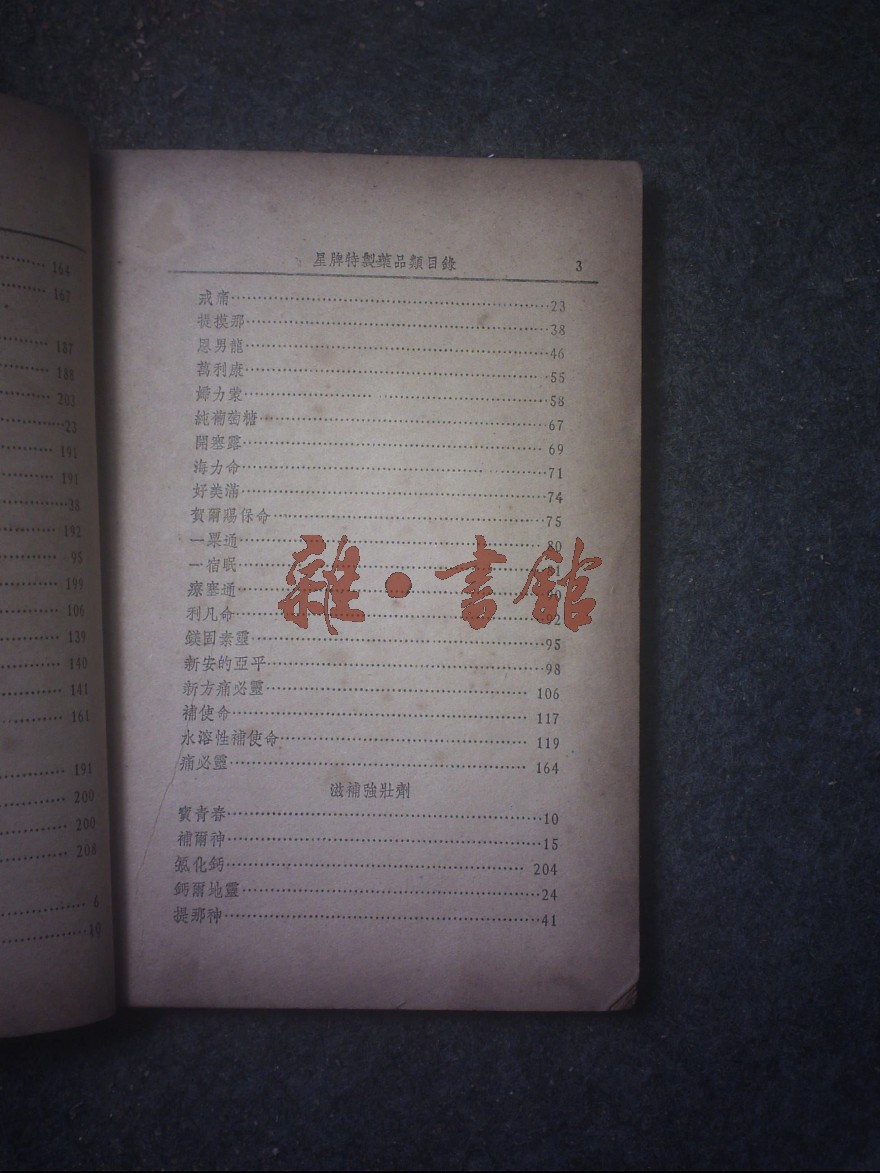 164
167
187
188
203
23
191
191
38
192
95
199
106
139
140
141
161
191
200
200
208
6
10
星牌特製藥品類目錄 3
戒痛 23
提摸那 38
恩男龍 46
萬利康 55
婦力蒙 58
純葡萄糖 67
開塞露 69
海力命 71
好美滿 74
賀爾賜保命 75
一粟通 80
一宿眠 1
療塞通 0
利凡命 92
鎂固素靈 95
新安的亞平 98
新方痛必靈 106
補使命 117
水溶性補使命 119
痛必靈 164
滋補強壯劑
寶青春 10
補爾神 15
氯化鈣 204
鈣爾地靈 24
提那神 41
雜・書館